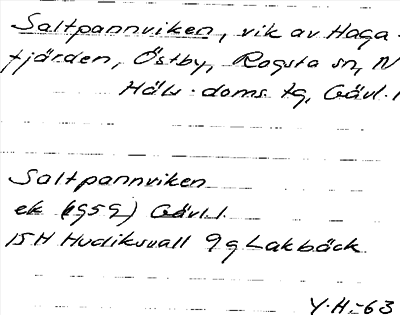 Saltpannviken, vik av Haga-
fjärden, Östby, Rogsta sn, N
Häls. doms. tg, Gävl. l
Saltpannviken
ek (1959) Gävl.l.
15H Hudiksvall 9g Lakbäck
Y.H.-63